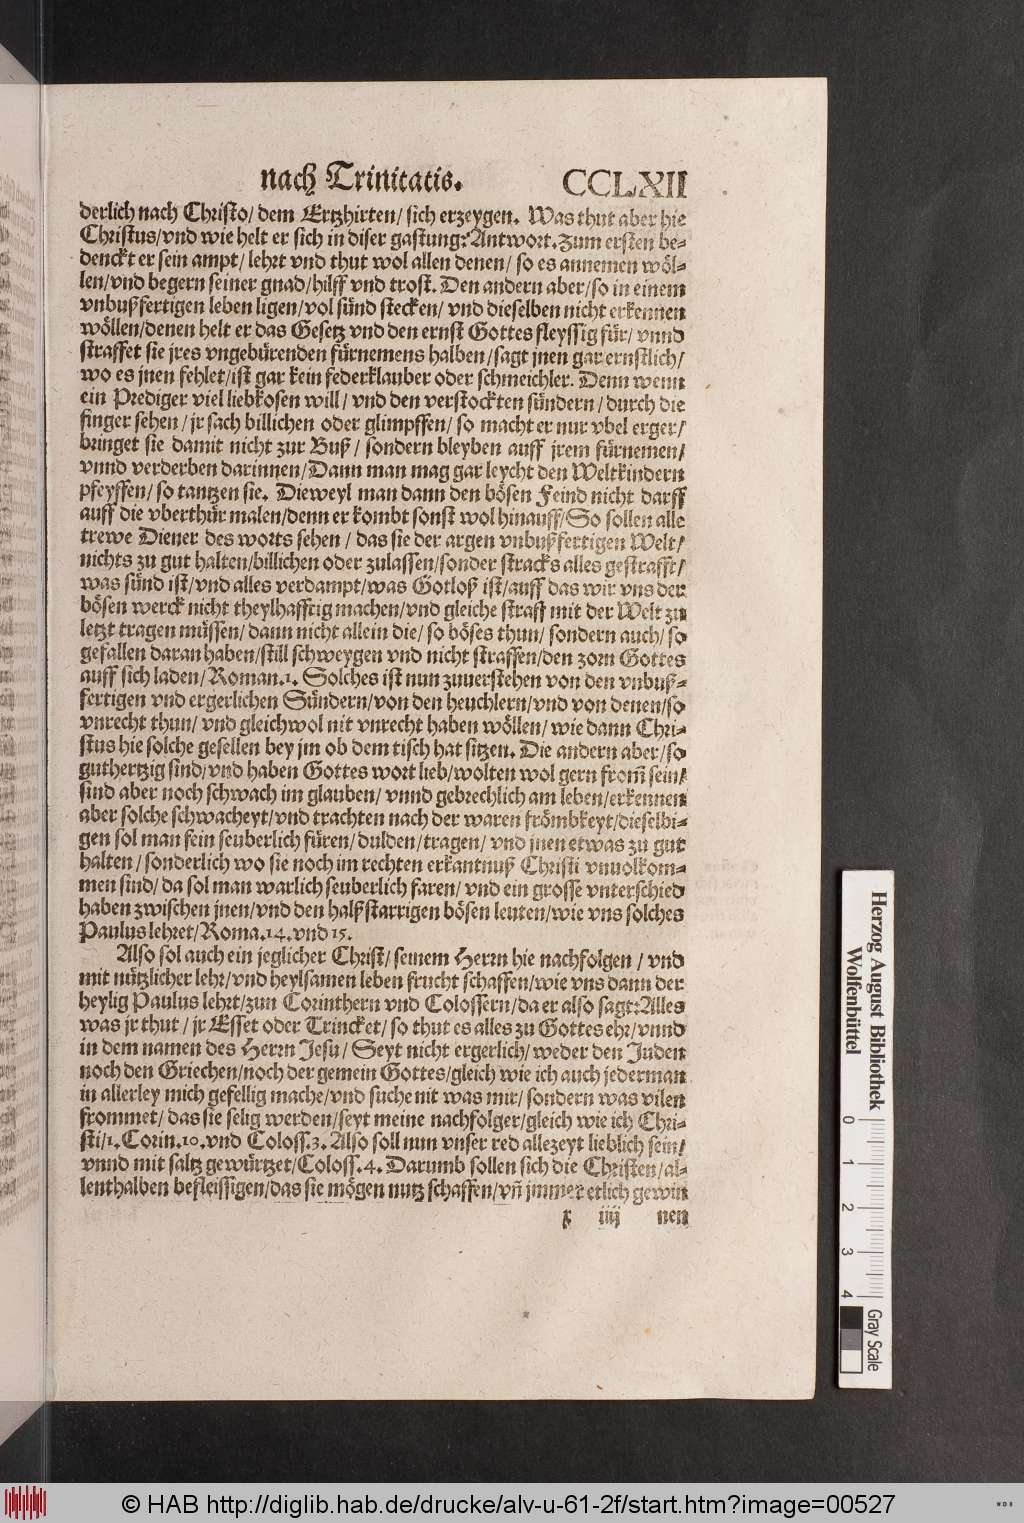 nach Trinitatis. CCLXII
derlich nach Christo/ dem Ertzhirten/ sich erzeygen. Was thut aber hie
Christus/vnd wie helt er sich in diser gastung? Antwort. Zum ersten be-
denckt er sein ampt/ lehrt vnd thut wol allen denen/ so es annemen wöl-
len/vnd begern seiner gnad/hilff vnd trost. Den andern aber/so in einem
vnbußfertigen leben ligen/vol sünd stecken/ vnd dieselben nicht erkennen
wöllen/denen helt er das Gesetz vnd den ernst Gottes fleyssig für/ vnnd
straffet sie jres vngebürenden fürnemens halben/sagt jnen gar ernstlich/
wo es jnen fehlet/ist gar kein federklauber oder schmeichler. Denn wenn
ein Prediger viel liebkosen will/ vnd den verstockten sündern/ durch die
finger sehen/ jr sach billichen oder glimpffen/ so macht er nur vbel erger/
bringet sie damit nicht zur Buß/ sondern bleyben auff jrem fürnemen/
vnnd verderben darinnen/Dann man mag gar leycht den Weltkindern
pfeyffen/ so tantzen sie. Dieweyl man dann den bösen Feind nicht darff
auff die vberthür malen/denn er kombt sonst wol hinauff/So sollen alle
trewe Diener des worts sehen/ das sie der argen vnbußfertigen Welt/
nichts zu gut halten/billichen oder zulassen/sonder stracks alles gestrafft/
was sünd ist/vnd alles verdampt/was Gotloß ist/auff das wir vns der
bösen werck nicht theylhafftig machen/vnd gleiche straff mit der Welt zu
letzt tragen müssen/ dann nicht allein die/ so böses thun/ sondern auch/ so
gefallen daran haben/still schweygen vnd nicht straffen/den zorn Gottes
auff sich laden/ Roman.1. Solches ist nun zuuerstehen von den vnbuß-
fertigen vnd ergerlichen Sündern/von den heuchlern/vnd von denen/so
vnrecht thun/ vnd gleichwol nit vnrecht haben wöllen/ wie dann Chri-
stus hie solche gesellen bey jm ob dem tisch hat sitzen. Die andern aber/so
guthertzig sind/vnd haben Gottes wort lieb/wolten wol gern from̃ sein/
sind aber noch schwach im glauben/ vnnd gebrechlich am leben/erkennen
aber solche schwacheyt/vnd trachten nach der waren frömbkeyt/dieselbi-
gen sol man fein seuberlich füren/ dulden/tragen/ vnd jnen etwas zu gut
halten/ sonderlich wo sie noch im rechten erkantnuß Christi vnuolkom-
men sind/ da sol man warlich seuberlich faren/ vnd ein grosse vnterschied
haben zwischen jnen/vnd den halßstarrigen bösen leuten/wie vns solches
Paulus lehret/Roma.14.vnd 15.
Also sol auch ein jeglicher Christ/ seinem Herrn hie nachfolgen/ vnd
mit nützlicher lehr/vnd heylsamen leben frucht schaffen/wie vns dann der
heylig Paulus lehrt/zun Corinthern vnd Colossern/da er also sagt: Alles
was jr thut/ jr Esset oder Trincket/ so thut es alles zu Gottes ehr/vnnd
in dem namen des Herrn Jesu/ Seyt nicht ergerlich/weder den Juden
noch den Griechen/noch der gemein Gottes/gleich wie ich auch jederman
in allerley mich gefellig mache/vnd suche nit was mir/ sondern was vilen
frommet/ das sie selig werden/seyt meine nachfolger/gleich wie ich Chri-
sti/1. Corin.10.vnd Coloss.3. Also soll nun vnser red allezeyt lieblich sein/
vnnd mit saltz gewürtzet/Coloss.4. Darumb sollen sich die Christen/al-
lenthalben befleissigen/das sie mögen nutz schaffen/vñ jmmer etlich gewin
x iiij nen
Herzog August Bibliothek
Wolfenbüttel
0 1 2 3 4
Gray Scale
© HAB http://diglib.hab.de/drucke/alv-u-61-2f/start.htm?image=00527